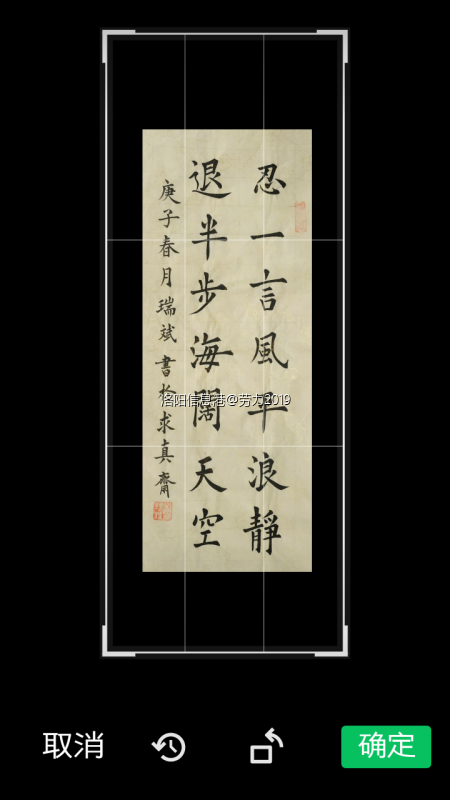 忍一言風平浪靜
退半步海闊天空
庚子春月瑞斌書於求真齋
洛阳信息港@劳大2019
取消
确定